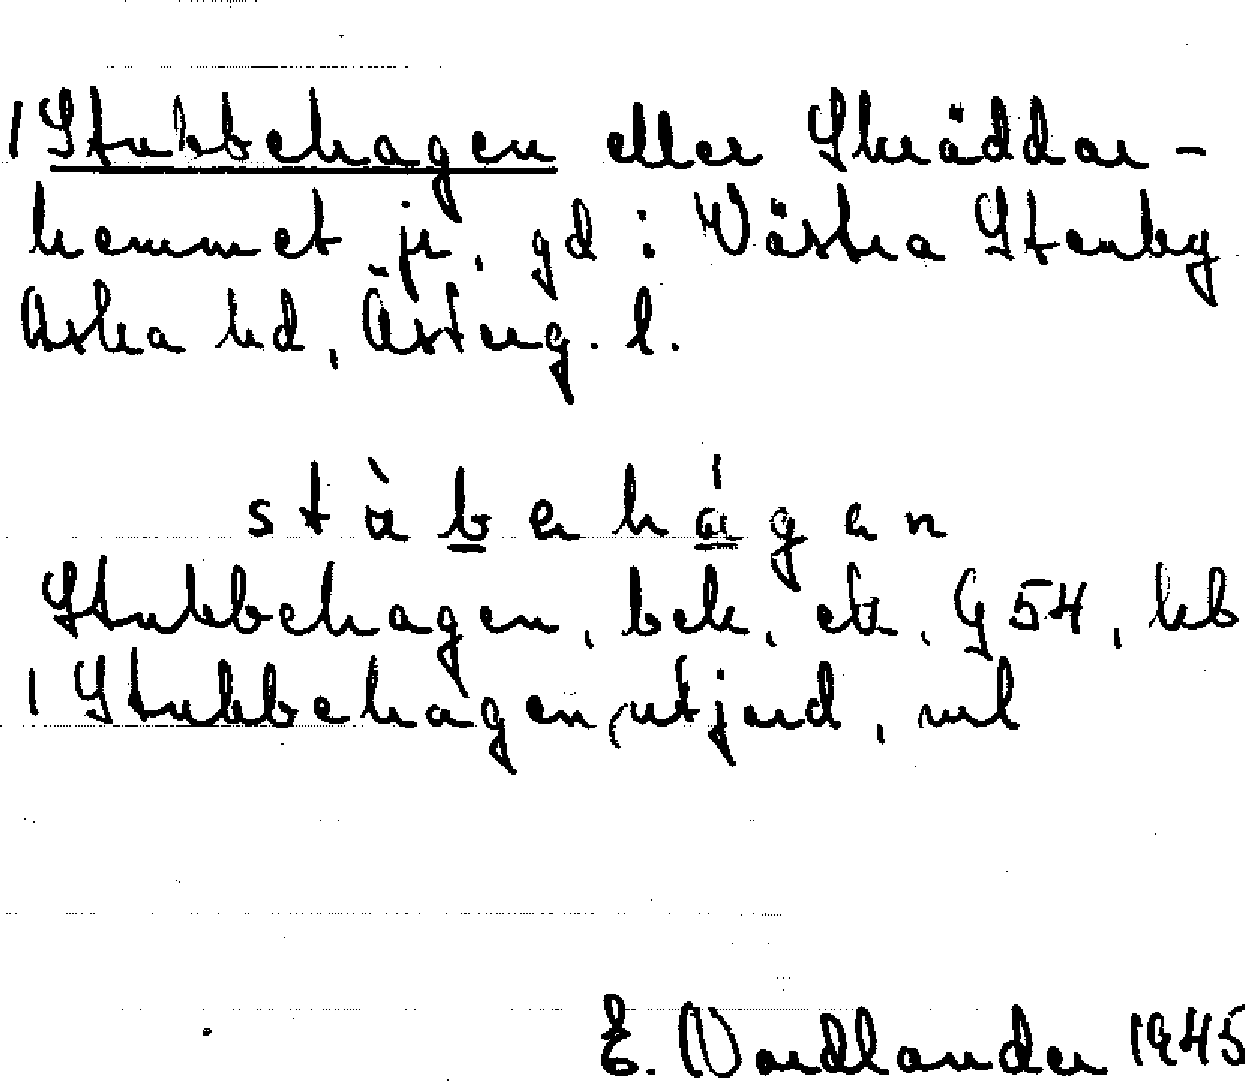 1 Stubbehagen eller Skräddar-
hemmet jr, gd i Västra Stenby
Aska hd, Östergs. l.
stàbehágen
Stubbehagen, bek. ek. G 54, hb
1 Stubbehagen, utjord, ml
E. Nordlander 1945